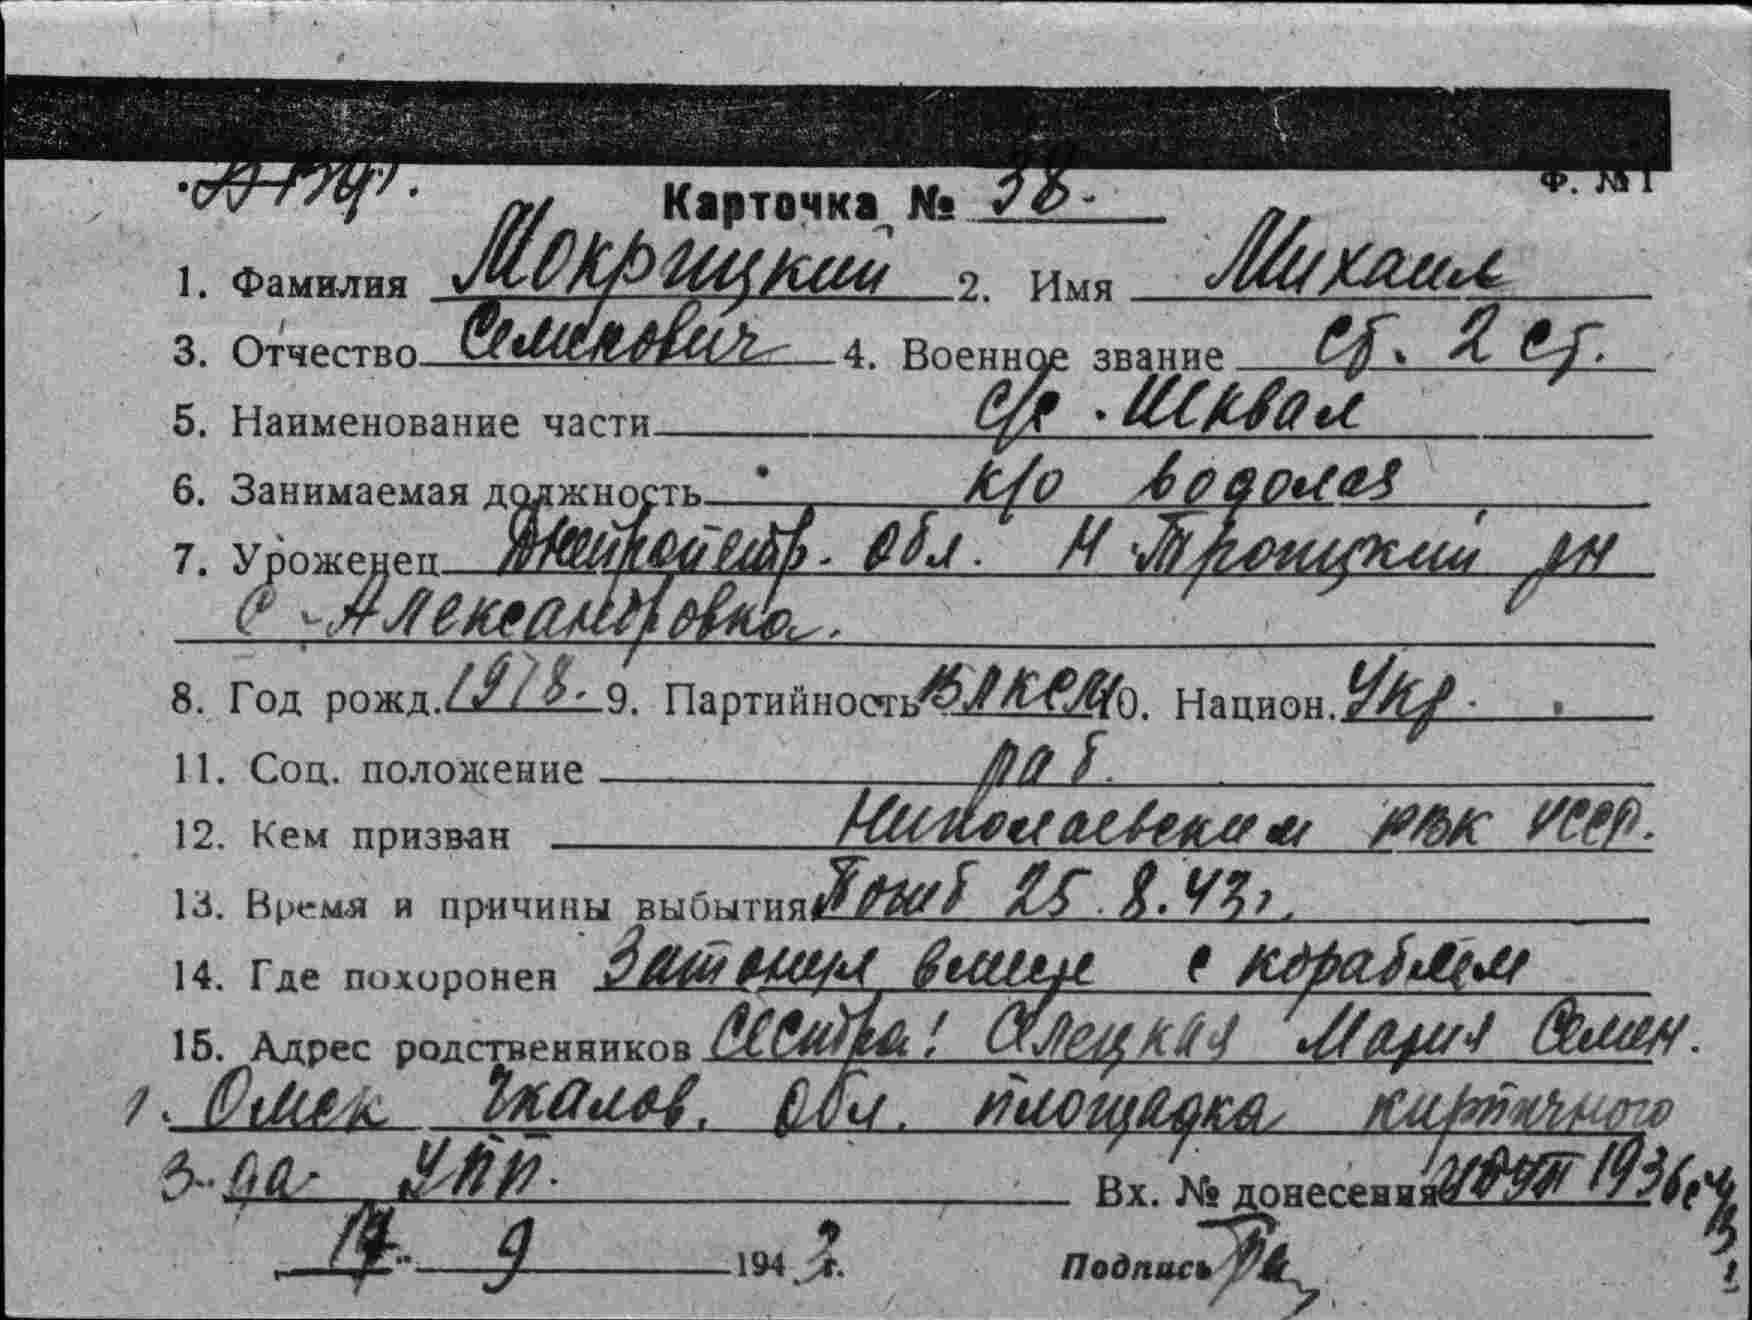 Ф. № 1
Карточка № 38.
1. Фамилия Мокрицкий 2. Имя Михаил
3. Отчество Семенович 4. Военное звание ст. 2 ст.
5. Наименование части с/к Шквал
6. Занимаемая должность к/о водолаз
7. Уроженец Днепропетр. обл. Н Троицкий рн
с Александровка.
8. Год рожд. 1918. 9. Партийность ВЛКСМ 10. Национ. Укр.
11. Соц. положение раб.
12. Кем призван Николаевским РВК УССР.
13. Время и причины выбытия Погиб 25.8.43 г.
14. Где похоронен Затонул вместе с кораблем
15. Адрес родственников Сестра! Мария Семен.
г. Омск Чкалов. обл. площадка кирпичного
з-да УПП. Вх. № донесения 1936
9 1943 г. Подпись